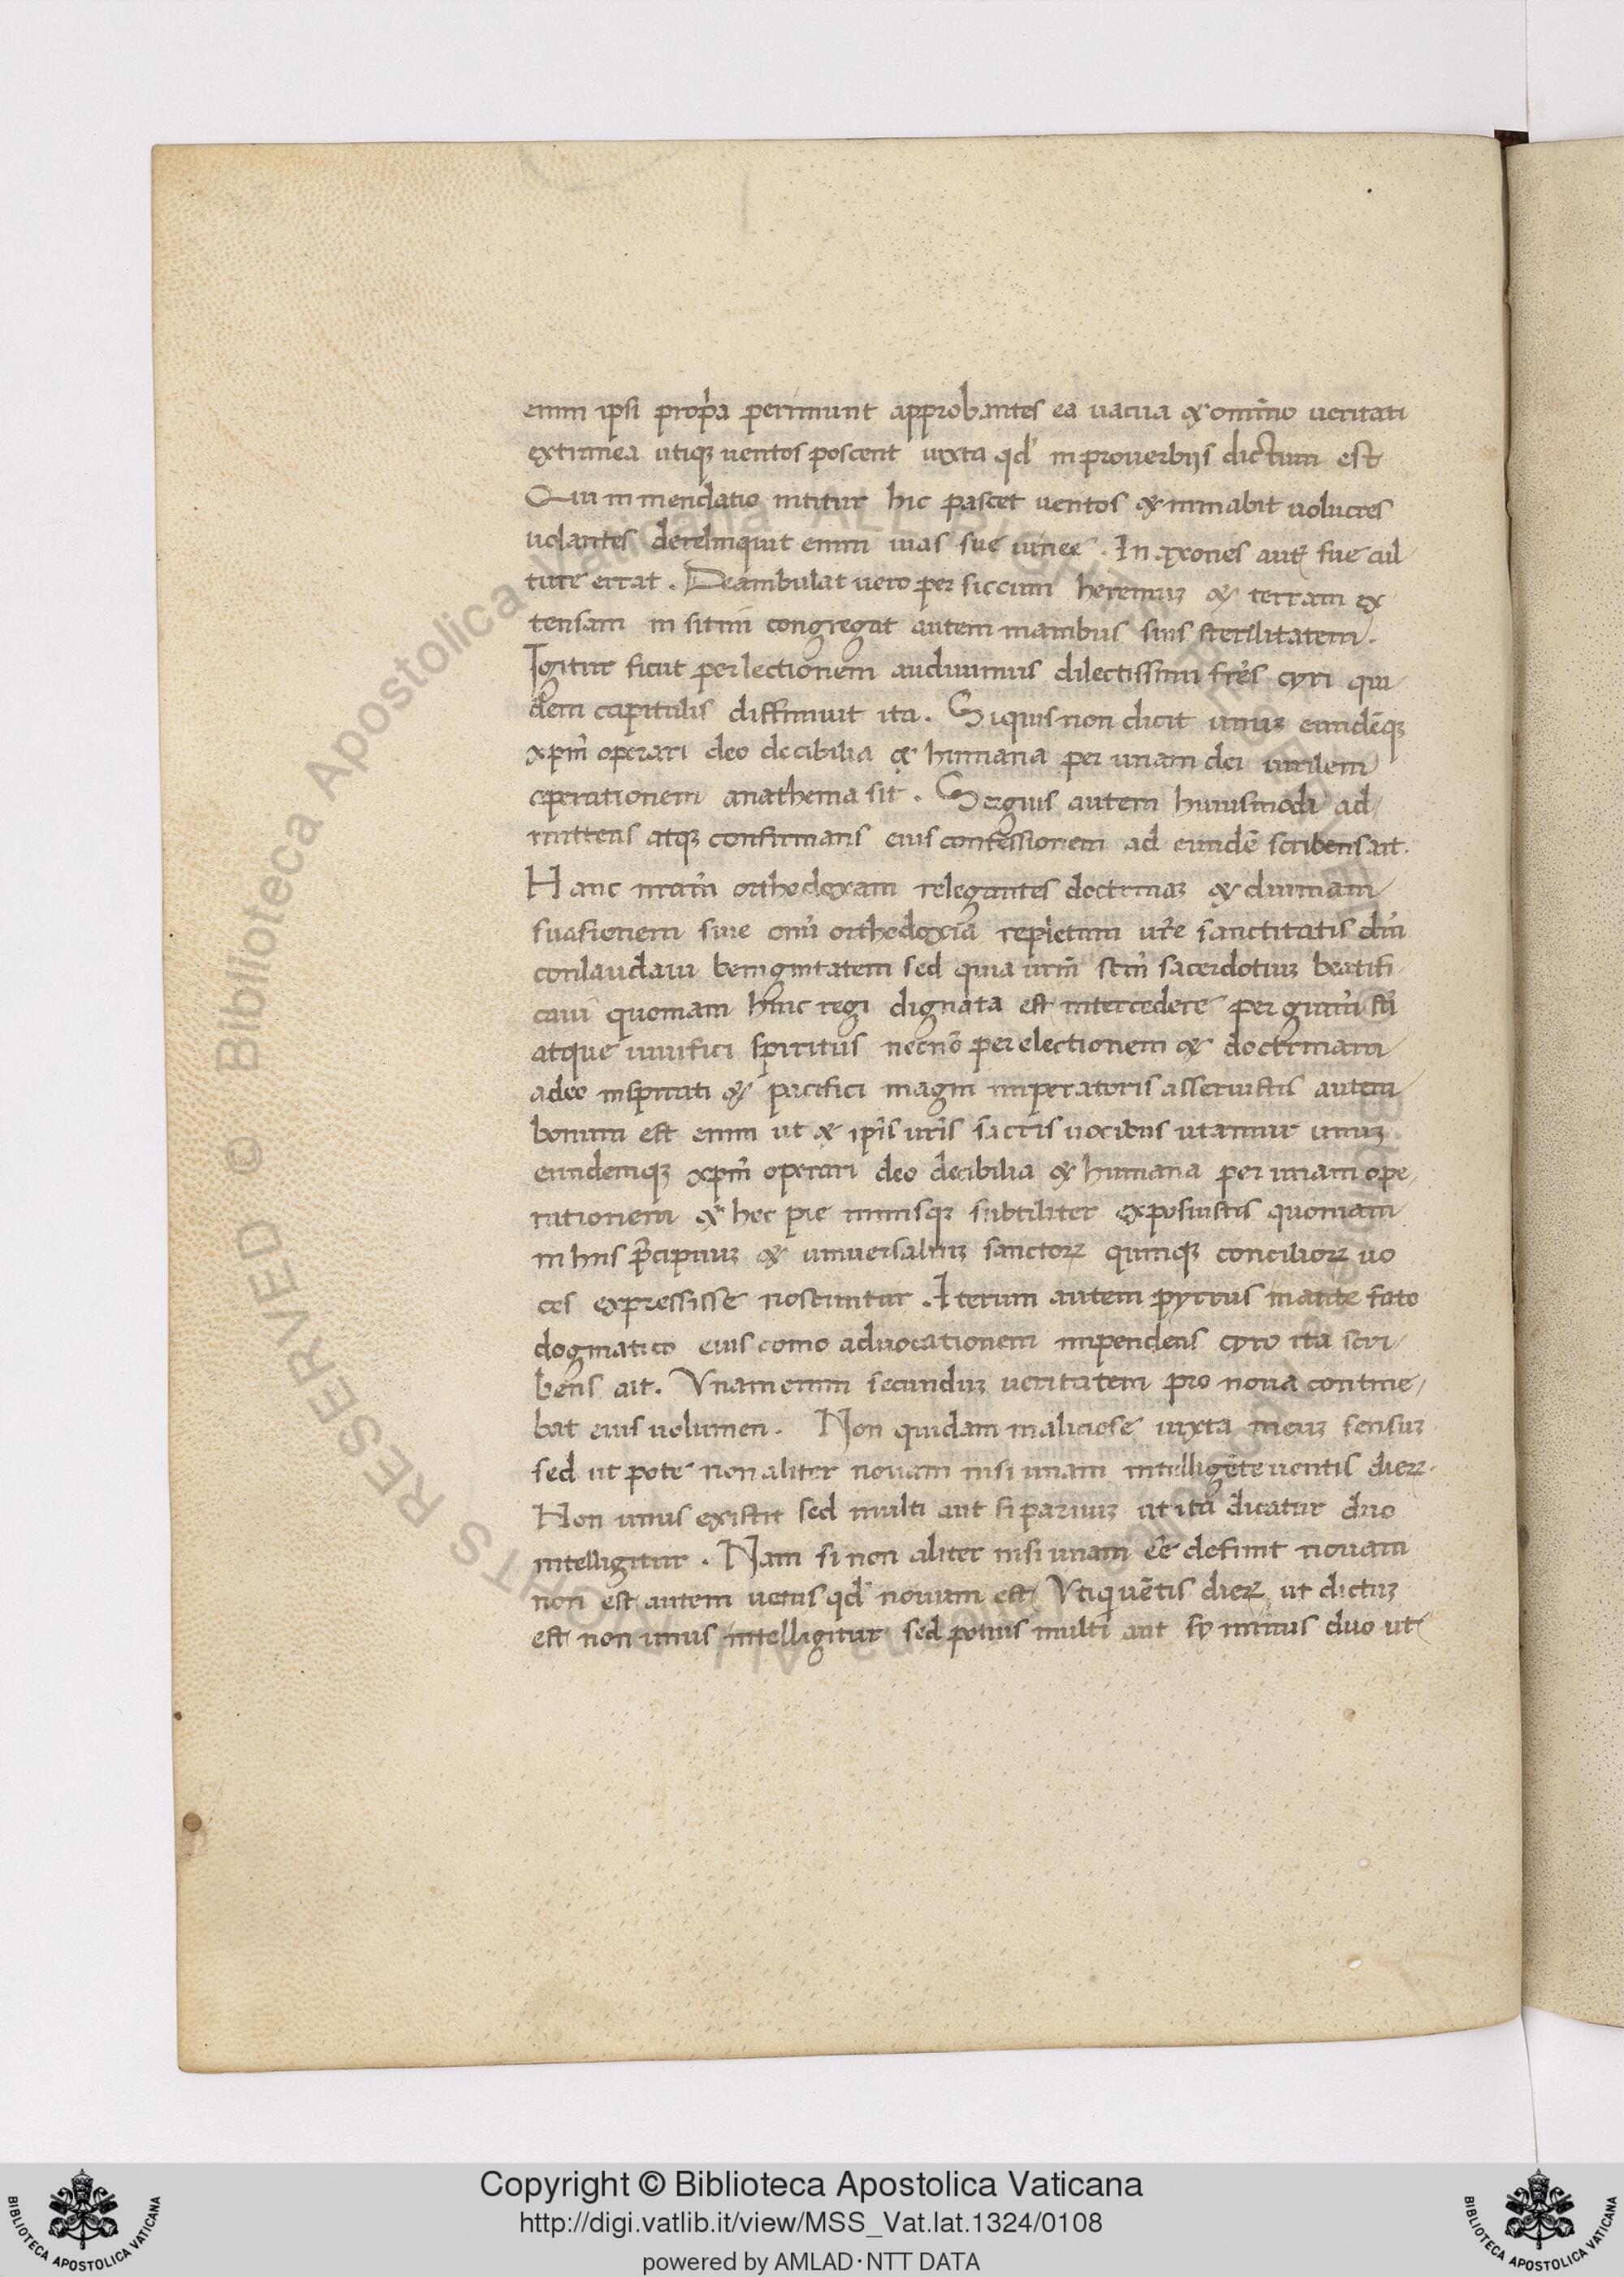 enim ipsi prop̃a perimunt approbantes ea uacua & omĩno ueritati
extranea utiqꝫ uentos poscent iuxta qd' in prouerbijs dictum est
Qui in mendatio nititur hic pascet uentos & minabit uolucres
uolantes derelinquit enim uias sue uinee . In axones aut̃ sue cul
ture errat . Deambulat uero per siccum heremuꝫ & terram ex
tensam in sitim congregat autem manibus suis sterilitatem .
Igitur sicut per lectionem audiuimus dilectissimi fr̃es cyri qui
dem capitulis diffiniuit ita . Siquis non dicit unuꝫ eundẽqꝫ
xpm̃ operari deo decibilia & humana per unam dei uirilem
operationem anathema sit . Sergius autem huiusmodi ad
mittens atqꝫ confirmans eius confessionem ad eundẽ scribens ait .
Hanc nram̃ orthodoxam relegantes doctrinaꝫ & diuinam
suasionem siue om̃i orthodoxia repletam ur̃e sanctitatis dũi
conlaudaui benignitatem sed quia urm̃ scm̃ sacerdotiuꝫ beatifi
caui quoniam hinc regi dignata est intercedere per grãm sc̃i
atque uiuifici spiritus necnõ per electionem & doctrinam
a deo inspirati & pacifici magni imperatoris asseruistis autem
bonum est enim ut & ip̃is ur̃is sacris uocibus utamur unuꝫ
eundemqꝫ xpm̃ operari deo decibilia & humana per unam ope
rationem & hec pie nimisqꝫ subtiliter exposuistis quoniam
in hiis p̃cipuuꝫ & uniuersaliuꝫ sanctoꝝ quinqꝫ concilioꝝ uo
ces expressisse noscuntur . Iterum autem pyrrus in ante fato
dogmatico eius como aduocationem impendens cyro ita scri
bens ait . Vnam enim secunduꝫ ueritatem pro noua contine
bat eius uolumen . Non quidam maliciose iuxta meuꝫ sensuꝫ
sed ut pote non aliter nouam nisi unam intelligẽte uentis dieꝝ .
Non unus existit sed multi aut si paruuꝫ ut ita dicatur duo
intelligitur . Nam si non aliter nisi unam ẽe definit nouam
non est autem uetus qd' nouum est Vtiqꝫ uẽtis dieꝝ ut dictuꝫ
est non unus intelligitur sed potius multi aut si minus duo ut
Copyright © Biblioteca Apostolica Vaticana
http://digi.vatlib.it/view/MSS_Vat.lat.1324/0108
powered by AMLAD·NTT DATA
BIBLIOTECA APOSTOLICA VATICANA
BIBLIOTECA APOSTOLICA VATICANA
© Biblioteca Apostolica Vaticana ALL RIGHTS RESERVED